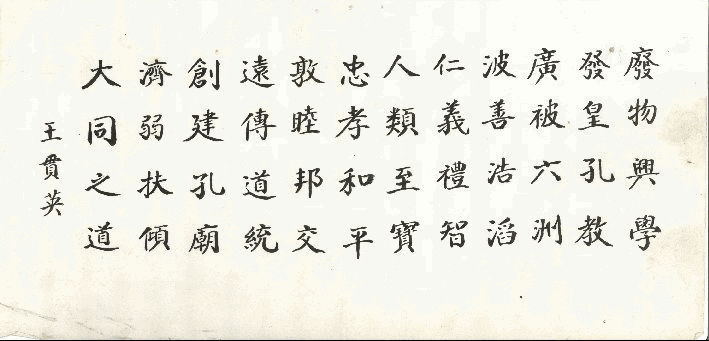 廢物興學
發皇孔教
廣被六洲
波善浩滔
仁義禮智
人類至寶
忠孝和平
敦睦邦交
遠傳道統
創建孔廟
濟弱扶傾
大同之道
王貫英